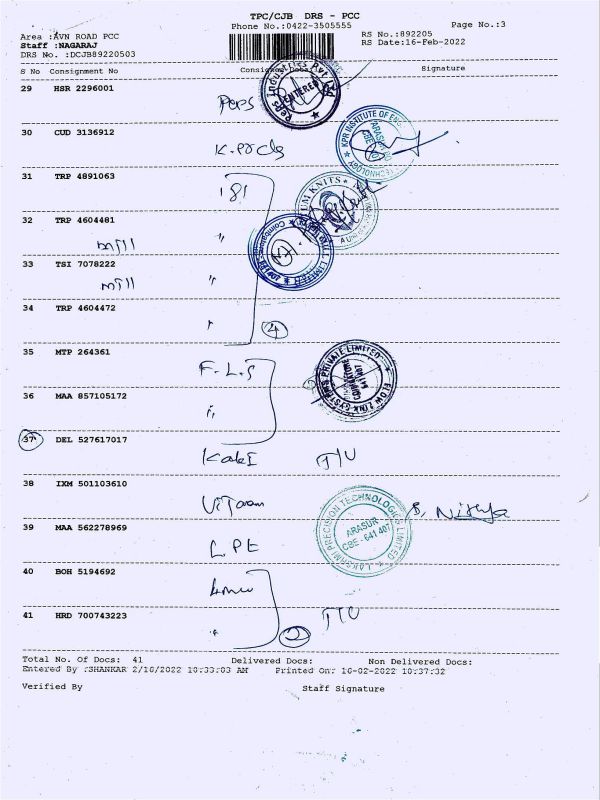 TPC/CJB DRS - PCC
Phone No.:0422-3505555
Page No.:3
Area :AVN ROAD PCC
RS No.:892205
Staff :NAGARAJ
RS Date:16-Feb-2022
DRS No. :DCJB89220503
S No Consignment No Signature
29 HSR 2296001
Peps
ENTERED
30 CUD 3136912
KPR INSTITUTE OF ENG
ARASUR
31 TRP 4891063
181
32 TRP 4604481
mill "
33 TSI 7078222
mill "
34 TRP 4604472
"
4
35 MTP 264361
F.L.S
FLOW LINK SYSTEMS PRIVATE LIMITED
36 MAA 857105172
"
37 DEL 527617017
38 IXM 501103610
39 MAA 562278969
LPE
LAKSHMI PRECISION TECHNOLOGIES LIMITED
ARASUR
CBE - 641 407
40 BOH 5194692
41 HRD 700743223
"
2
Total No. Of Docs: 41 Delivered Docs: Non Delivered Docs:
Entered By :SHANKAR 2/16/2022 10:33:03 AM Printed On: 16-02-2022 10:37:32
Verified By Staff Signature